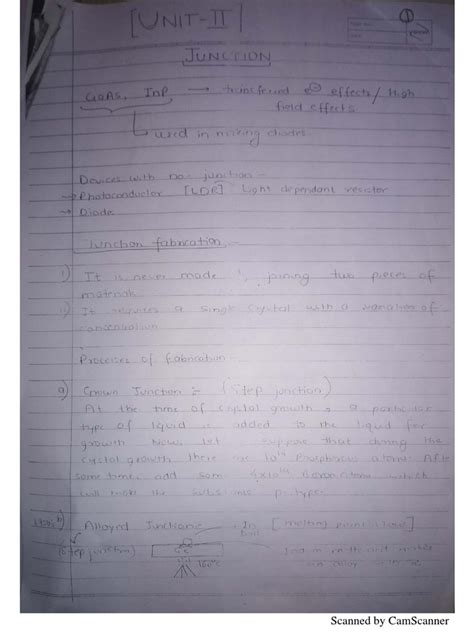 [UNIT-II]
JUNCTION
GaAs, InP → transferred e⊖ effects/ High
field effects
used in making diodes
Devices with no junction -
→ Photoconductor [LDR] Light dependant resistor
→ Diode
Junction fabrication -
i) It is never made joining two pieces of
material
ii) It requires a single crystal with a variation of
concentration
Processes of fabrication -
a) Grown Junction :- (Step junction)
At the time of crystal growth a particular
type of liquid is added to the liquid for
growth Now, let suppose that during the
crystal growth there are 10¹⁴ Phosphorous atoms. After
some time, add some 6x10¹⁴ boron atoms which
will make the substance p-type.
b) Alloyed Junction :- In [melting point low]
(Step junction) Ge
160°C an alloy with Ge
Scanned by CamScanner